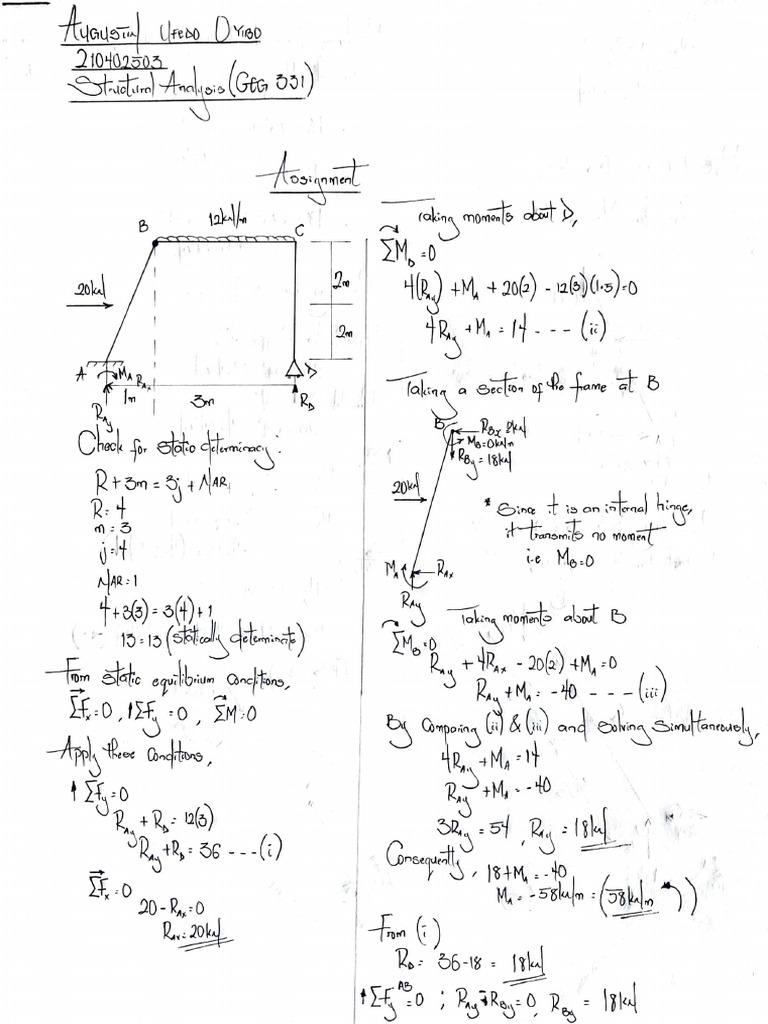 AUGUSTIN UFEDO OYIBO
210402503
Structural Analysis (GEG 331)
Assignment
12kN/m
B
C
20kN
2m
2m
A
MA
RAx
D
1m
3m
RAy
RD
Check for static determinacy:
R + 3m = 3j + NAR
R = 4
m = 3
j = 4
NAR = 1
4 + 3(3) = 3(4) + 1
13 = 13 (statically determinate)
From static equilibrium conditions,
ΣFx = 0, ↑ΣFy = 0, ΣM = 0
Apply these conditions,
↑ ΣFy = 0
RAy + RD = 12(3)
RAy + RD = 36 --- (i)
ΣFx = 0
20 - RAx = 0
RAx = 20kN
Taking moments about D,
ΣMD = 0
4(RAy) + MA + 20(2) - 12(3)(1.5) = 0
4RAy + MA = 14 --- (ii)
Taking a section of the frame at B
B
RBx 0kN
MB = 0kNm
RBy = 18kN
20kN
* Since it is an internal hinge,
it transmits no moment
i.e MB = 0
MA
RAx
RAy
Taking moments about B
ΣMB = 0
RAy + 4RAx - 20(2) + MA = 0
RAy + MA = -40 --- (iii)
By comparing (ii) & (iii) and solving simultaneously,
4RAy + MA = 14
RAy + MA = -40
3RAy = 54, RAy = 18kN
Consequently, 18 + MA = -40
MA = -58kNm = (58kNm ))
From (i)
RD = 36 - 18 = 18kN
↑ΣFy AB = 0 ; RAy - RBy = 0, RBy = 18kN